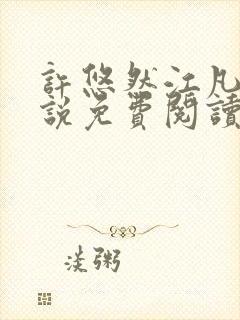 許悠然江凡
說免費閱讀
淡粥